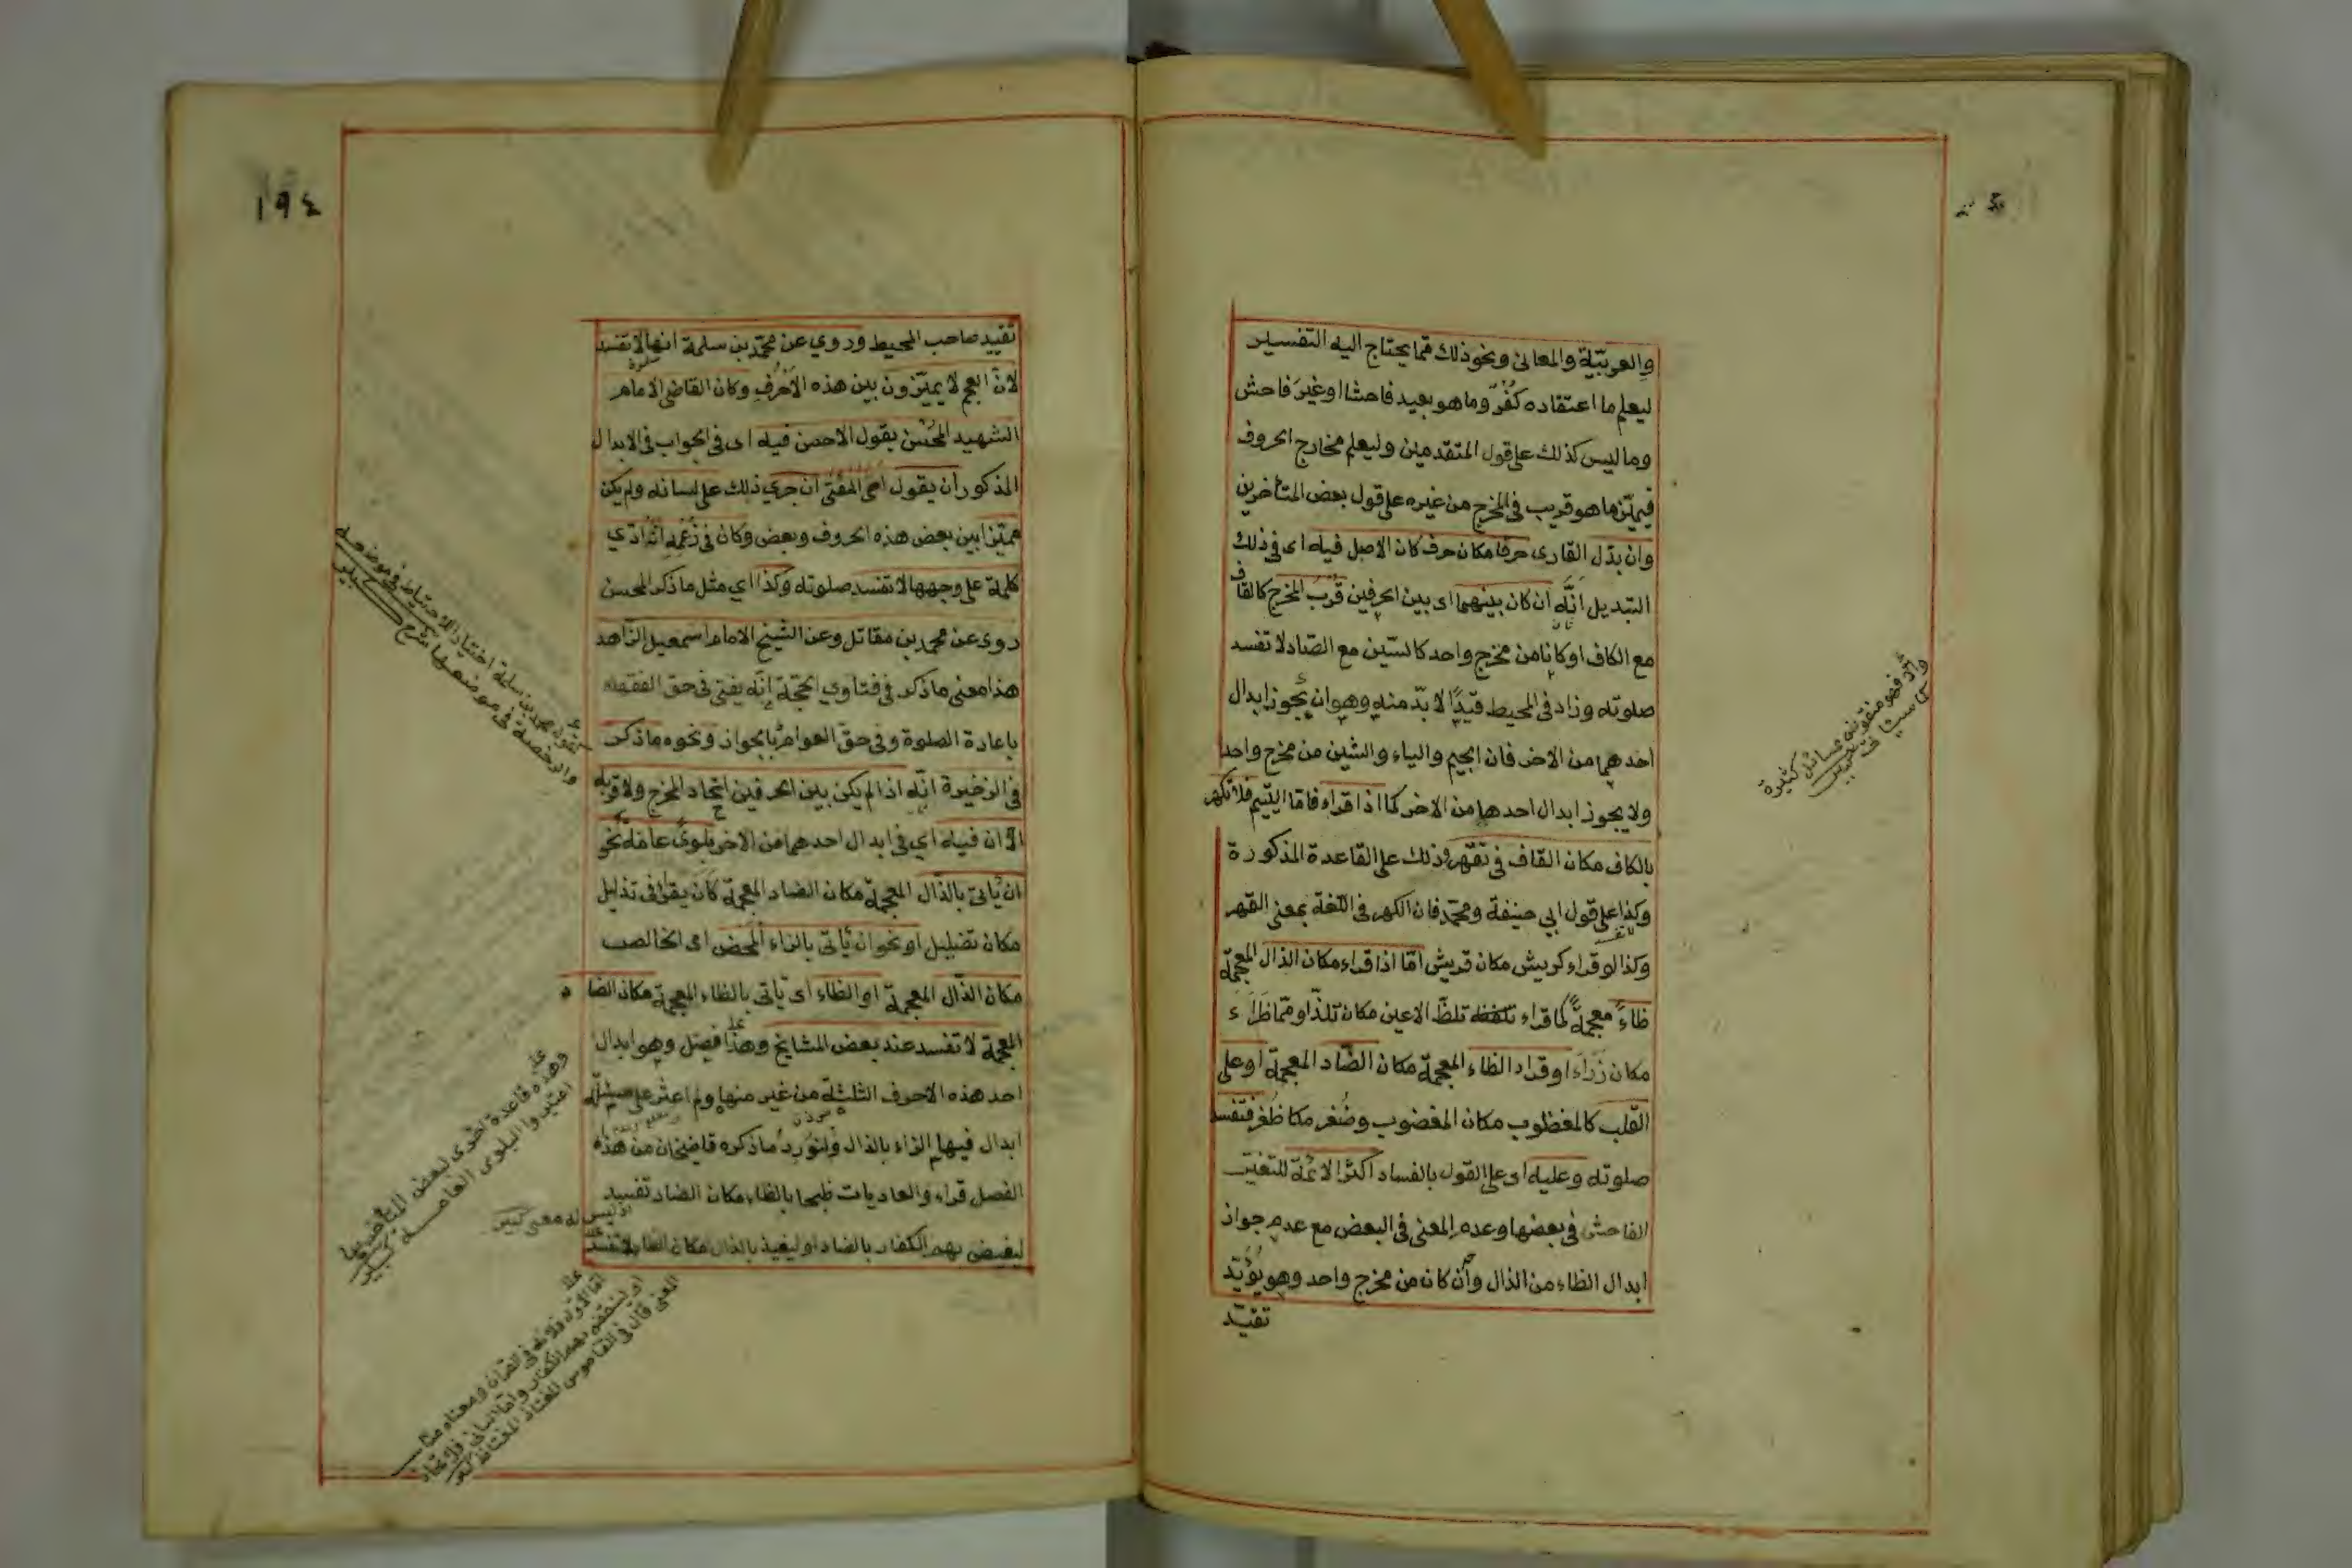 والعربيّة والمعانى ونحو ذلك مّما يحتاج اليه التفسير
ليعلم ما اعتقاده كُفْرٌ وما هو بعيد فاحشا او غيرَ فاحش
وما ليس كذلك على قول المتقدمين وليعلم مخارج الحروف
فيميّز ما هو قريب فى المخرج من غيره على قول بعض المتأخرين
وان بدّل القارى حرفا مكان حرف كان الاصل فيه اى فى ذلك
التبديل انَّه ان كان بينهما اى بين الحرفين قُرْبُ المخرج كالقاف
مع الكاف او كانا من مخرج واحد كالسّين مع الصّاد لا تفسد
صلوته وزاد فى المحيط قيدًا لا بدّ منه وهو ان يجوز ابدال
احدهما من الاخر فان الجيم والياء والشين من مخرج واحد
ولا يجوز ابدال احدها من الاخر كما اذا قراء فامّا اليتيم فلا تكهر
بالكاف مكان القاف فى تقهر وذلك على القاعدة المذكورة
وكذا على قول ابى حنيفة ومحمّد فان الكهر فى اللّغة بمعنى القهر
وكذا لو قراء كريش مكان قريش امّا اذا قراء مكان الذال المعجمة
ظاءً معجمةً كما قراء تلظّ الاعين مكان تلذّ او ممّا ظَرَاَء
مكان ذَرَاَء او قراء الظاء المعجمة مكان الضّاد المعجمة او على
القلب كالمغظوب مكان المغضوب وضُفر مكا ظُفر فتفسد
صلوته وعليه اى على القول بالفساد اكثر الائمّة للتغيّر
الفاحش فى بعضها وعدم المعنى فى البعض مع عدم جواز
ابدال الظاء من الذال وان كان من مخرج واحد وهو يؤيّد
تقيّد
كثيرة
١٩٤
تقييد صاحب المحيط وروي عن محمّد بن سلمة انها لا تفسد
صلوة
لانّ العجم لا يميّزون بين هذه الاَحْرُفِ وكان القاضى الامام
الشهيد المحُسّن يقول الاحسن فيه اى فى الجواب فى الابدال
المذكور ان يقول اى المفتى ان جري ذلك على لسانه ولم يكن
مميّزا بين بعض هذه الحروف وبعض وكان فى زعمه انّه ادّي
كلمة على وجهها لا تفسد صلوته وكذا اي مثل ما ذكر المحسن
روى عن محمد بن مقاتل وعن الشيخ الامام اسمعيل الزّاهد
هذا معنى ما ذكر فى فتاوي الحجّة انّه يفتى فى حق الفقهاء
باعادة الصلوة وفى حق العوام بالجواز ونحوه ما ذكر
فى الذخيرة انّه اذا لم يكن بين الحرفين اتحاد المخرج ولا قربه
الّا ان فيه اي فى ابدال احدهما من الاخر بلوىً عامّة نحو
ان يأتى بالذّال المعجمة مكان الضاد المعجمة كاَن يقرأ فى تذليل
مكان تضليل او نحو ان يأتى بالزاء المحض اى الخالص
مكان الذّال المعجمة او الظاء اى يأتى بالظاء المعجمة مكان الضاد
المعجمة لا تفسد عند بعض المشايخ وهذا فصل وهو ابدال
احد هذه الاحرف الثلثة من غير منها ولم اعثر على مسئلة
ابدال فيها الزاء بالذال ولنورد ما ذكره قاضيخان من هذه
الفصل قراء والعاديات ظبحا بالظاء مكان الضاد تفسد
اذ ليس له معنى كبير
ليغيض بهم الكفار بالضاد او ليغيذ بالذال مكان الظا لا تفسد
قوله محمد بن سلمة اختيار الاحتياط فى موضعه
والرخصة فى موضعها شرح كبير
وهذه قاعدة اخرى لبعض المتأخرين
اعتبروا البلوى العامة كبير
المعنى قال فى القاموس